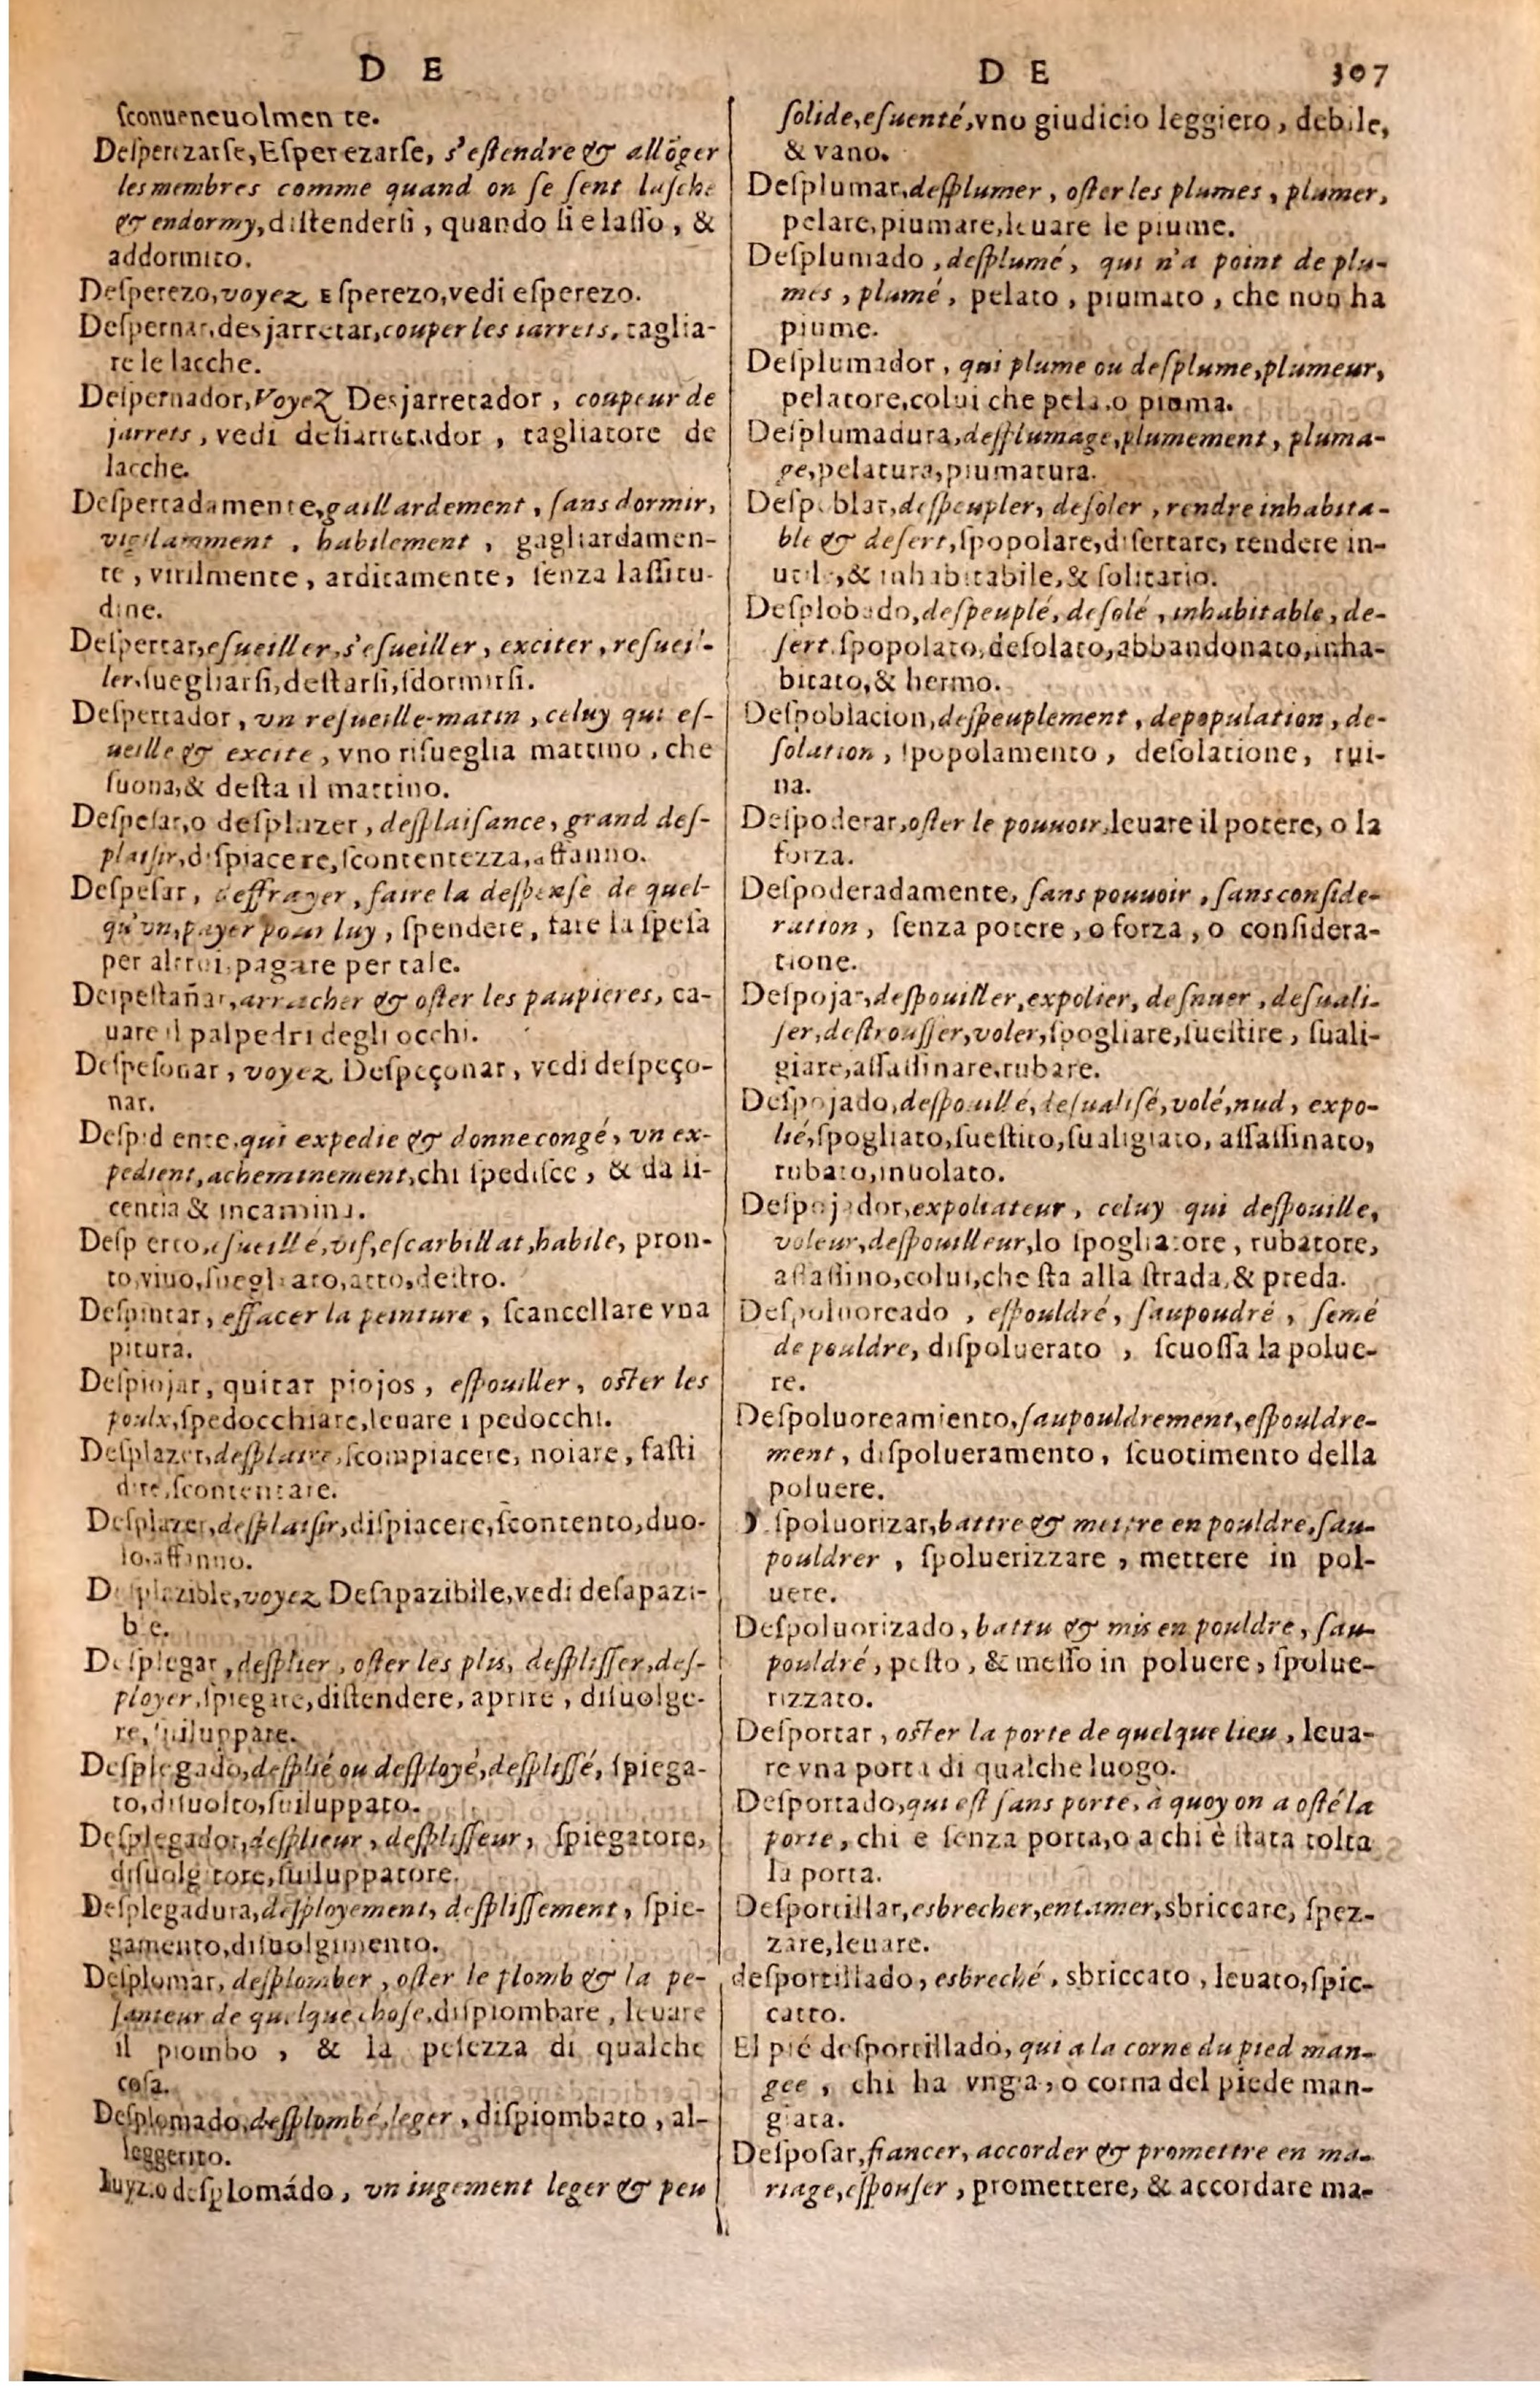 D E
ſconueneuolmen te.
Deſperezarſe, Eſperezarſe, s'eſtendre & allõger
les membres comme quand on ſe ſent laſche
& endormy, diſtenderſi, quando ſi e laſſo, &
addormito.
Deſperezo, voyez Esperezo, vedi eſperezo.
Deſpernar, desjarretar, couper les iarrets, taglia-
re le lacche.
Deſpernador, Voyez Desjarretador, coupeur de
jarrets, vedi deſiarretador, tagliatore de
lacche.
Deſpertadamente, gaillardement, ſans dormir,
vigilamment, habilement, gagliardamen-
te, virilmente, arditamente, ſenza laſſitu-
dine.
Deſpertar, eſueiller, s'eſueiller, exciter, reſueil-
ler, ſuegliarſi, deſtarſi, ſdormirſi.
Deſpertador, vn reſueille-matin, celuy qui eſ-
ueille & excite, vno riſueglia mattino, che
ſuona, & deſta il mattino.
Deſpeſar, o deſplazer, deſplaiſance, grand deſ-
plaiſir, diſpiacere, ſcontentezza, affanno.
Deſpeſar, deffrayer, faire la deſpenſe de quel-
qu'vn, payer pour luy, ſpendere, fare la ſpeſa
per altrui, pagare per tale.
Deſpeſtañar, arracher & oſter les paupieres, ca-
uare il palpedri degli occhi.
Deſpeſonar, voyez Deſpeçonar, vedi deſpeço-
nar.
Deſpidente, qui expedie & donne congé, vn ex-
pedient, acheminement, chi ſpediſce, & da li-
centia & incamina.
Deſp erto, eſueillé, vif, eſcarbillat, habile, pron-
to, viuo, ſuegliato, atto, deſtro.
Deſpintar, effacer la peinture, ſcancellare vna
pitura.
Deſpiojar, quitar piojos, eſpouiller, oſter les
poulx, ſpedocchiare, leuare i pedocchi.
Deſplazer, deſplaire, ſcompiacere, noiare, faſti
dire, ſcontentare.
Deſplazer, deſplaiſir, diſpiacere, ſcontento, duo-
lo, affanno.
Deſplazible, voyez Deſapazibile, vedi deſapazi-
b e.
Deſplegar, deſplier, oſter les plis, deſpliſſer, deſ-
ployer, ſpiegare, diſtendere, aprire, diſuolge-
re, ſuiluppare.
Deſplegado, deſplié ou deſployé, deſpliſſé, ſpiega-
to, diſuolto, ſuiluppato.
Deſplegador, deſplieur, deſpliſſeur, ſpiegatore,
diſuolgitore, ſuiluppatore.
Deſplegadura, deſployement, deſpliſſement, ſpie-
gamento, diſuolgimento.
Deſplomar, deſplomber, oſter le plomb & la pe-
ſanteur de quelque choſe, diſpiombare, leuare
il piombo, & la peſezza di qualche
coſa.
Deſplomado, deſplombé, leger, diſpiombato, al-
leggerito.
Iuyzio deſplomádo, vn iugement leger & peu
D E 307
ſolide, eſuenté, vno giudicio leggiero, debile,
& vano.
Deſplumar, deſplumer, oſter les plumes, plumer,
pelare, piumare, leuare le piume.
Deſplumado, deſplumé, qui n'a point de plu-
mes, plumé, pelato, piumato, che non ha
piume.
Deſplumador, qui plume ou deſplume, plumeur,
pelatore, colui che pela, o piuma.
Deſplumadura, deſplumage, plumement, pluma-
ge, pelatura, piumatura.
Deſpoblar, deſpeupler, deſoler, rendre inhabita-
ble & deſert, ſpopolare, diſertare, rendere in-
utile, & inhabitabile, & ſolitario.
Deſplobado, deſpeuplé, deſolé, inhabitable, de-
ſert. ſpopolato, deſolato, abbandonato, inha-
bitato, & hermo.
Deſpoblacion, deſpeuplement, depopulation, de-
ſolation, ſpopolamento, deſolatione, rui-
na.
Deſpoderar, oſter le pouuoir, leuare il potere, o la
forza.
Deſpoderadamente, ſans pouuoir, ſans conſide-
ration, ſenza potere, o forza, o conſidera-
tione.
Deſpojar, deſpouiller, expolier, deſnuer, deſuali-
ſer, deſtrouſſer, voler, ſpogliare, ſueſtire, ſuali-
giare, aſſaſſinare, rubare.
Deſpojado, deſpouillé, deſualiſé, volé, nud, expo-
lié, ſpogliato, ſueſtito, ſualigiato, aſſaſſinato,
rubato, inuolato.
Deſpojador, expoliateur, celuy qui deſpouille,
voleur, deſpouilleur, lo ſpogliatore, rubatore,
aſſaſſino, colui, che ſta alla ſtrada, & preda.
Deſpoluoreado, eſpouldré, ſaupoudré, ſemé
de pouldre, diſpoluerato, ſcuoſſa la polue-
re.
Deſpoluoreamiento, ſaupouldrement, eſpouldre-
ment, diſpolueramento, ſcuotimento della
poluere.
D ſpoluorizar, battre & mettre en pouldre, ſau-
pouldrer, ſpoluerizzare, mettere in pol-
uere.
Deſpoluorizado, battu & mis en pouldre, ſau-
pouldré, peſto, & meſſo in poluere, ſpolue-
rizzato.
Deſportar, oſter la porte de quelque lieu, leua-
re vna porta di qualche luogo.
Deſportado, qui eſt ſans porte, à quoy on a oſté la
porte, chi e ſenza porta, o a chi è ſtata tolta
la porta.
Deſportillar, esbrecher, entamer, sbriccare, ſpez-
zare, leuare.
deſportillado, esbreché, sbriccato, leuato, ſpic-
catto.
El pié deſportillado, qui a la corne du pied man-
gee, chi ha vngia, o corna del piede man-
giata.
Deſpoſar, fiancer, accorder & promettre en ma-
riage, eſpouſer, promettere, & accordare ma-